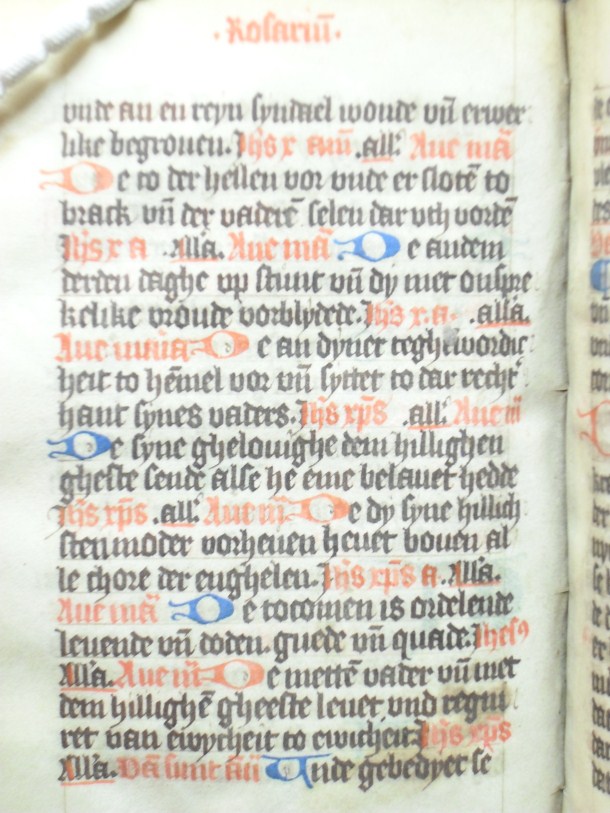 · Rosariū ·
vnde an en reyn syndael wonde vn̄ erwer
like begrouen. Jhs x am̄ .all. Aue mā
De to der hellen vor vnde er slotē to
brack vn̄ der vaderē selen dar vth vordē
Jhs x a .Alla. Aue mā De andem
derden daghe vp stunt vn̄ dy met onspre
kelike vroude vorblydede. Jhs x. a. .alla.
Aue maria De an dyner teghēwordic
heit to hēmel vor vn̄ syttet to dar recht
hant synes vaders. Jhs xps .all. Aue m̄
De syne ghelouighe dem hillighen
gheste sende alse he eme belauet hedde
Jhs xps .all. Aue m̄ De dy syne hillich
stenmoder vorheuen heuet bouen al
le chore der enghelen. Jhs xps a .Alla.
Aue mā De tocomen is ordelende
leuende vn̄ doden. guede vn̄ quade. Jhesꝰ
Alla. Aue m̄ De mettē vader vn̄ met
dem hillighē gheeste leuet vnd regni
ret van ewycheit to ewicheit. Jhs xps
Alla. Vnde gebedyet se